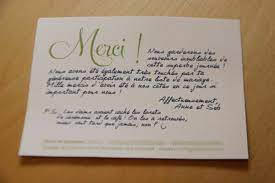 Merci !
Nous garderons des
souvenirs inoubliables de
cette superbe journée !
Nous avons été également très touchés par ta
généreuse participation à notre liste de mariage.
Mille mercis d'avoir été à nos côtés en ce jour si
important pour nous !
Affectueusement,
Anne et Seb
P.S. : Les avaient caché les livrets
de cérémonie et le café ! On les a retrouvés,
mais tard que jamais, non !